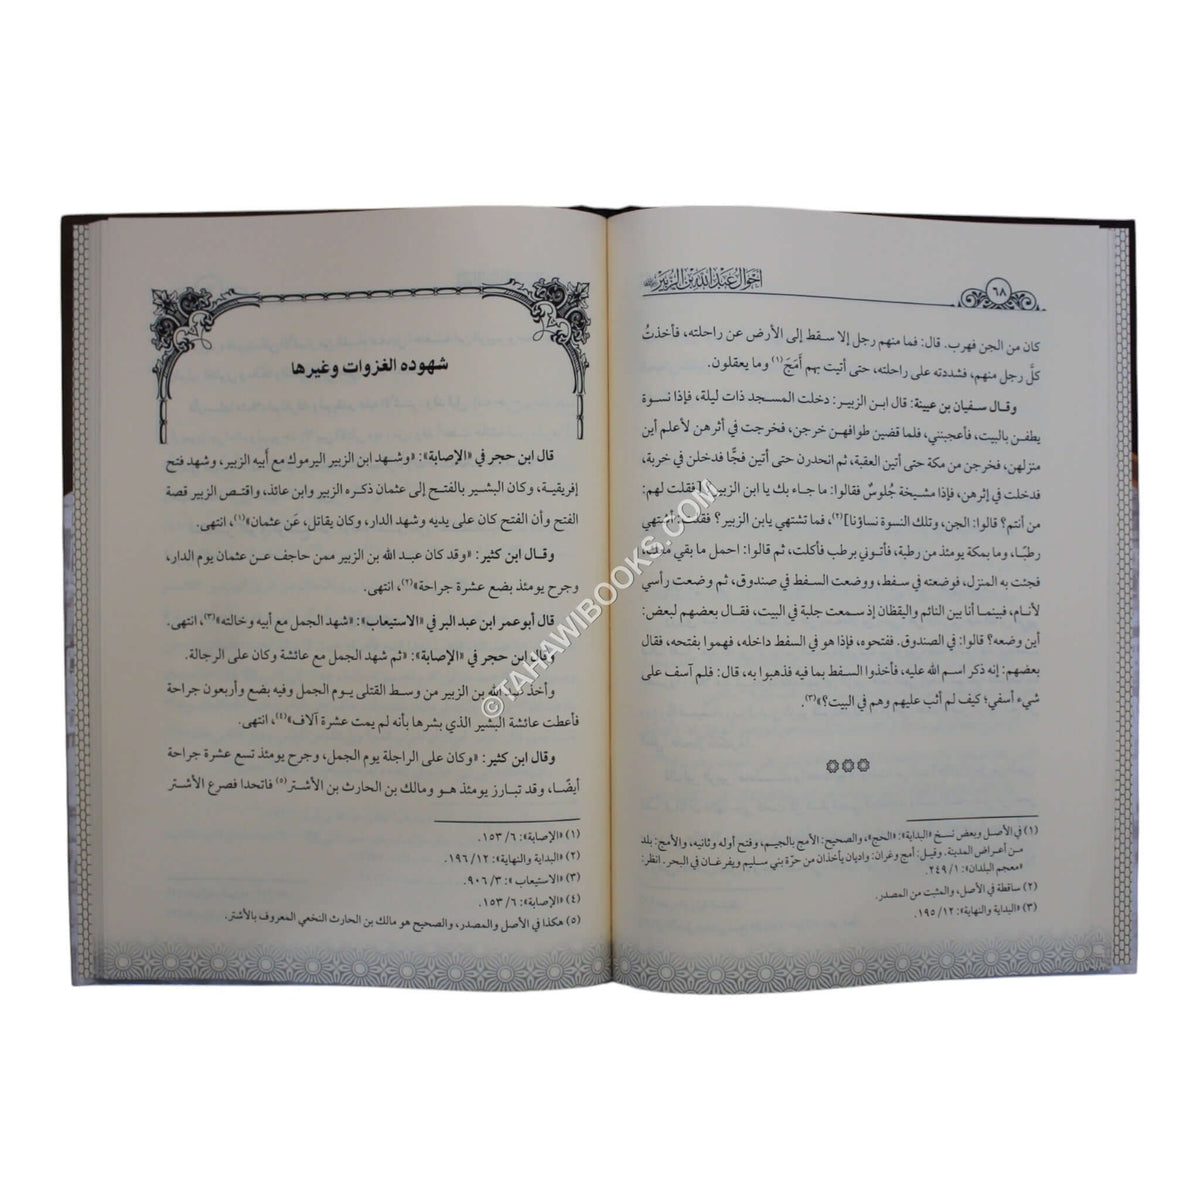 ٦٨
أحوال عبد الله بن الزبير
كان من الجن فهرب. قال: فما منهم رجل إلا سقط إلى الأرض عن راحلته، فأخذتُ
كلَّ رجل منهم، فشددته على راحلته، حتى أتيت بهم أَمَجَ(١) وما يعقلون.
وقال سفيان بن عيينة: قال ابن الزبير: دخلت المسجد ذات ليلة، فإذا نسوة
يطفن بالبيت، فأعجبنني، فلما قضين طوافهن خرجن، فخرجت في أثرهن لأعلم أين
منزلهن، فخرجن من مكة حتى أتين العقبة، ثم انحدرن حتى أتين فجًّا فدخلن في خربة،
فدخلت في إثرهن، فإذا مشيخة جُلوسٌ فقالوا: ما جاء بك يا ابن الزبير؟ [فقلت لهم:
من أنتم؟ قالوا: الجن، وتلك النسوة نساؤنا](٢)، فما تشتهي يابن الزبير؟ فقلت: أشتهي
رطبًا، وما بمكة يومئذ من رطبة، فأتوني برطب فأكلت، ثم قالوا: احمل ما بقي معك،
فجئت به المنزل، فوضعته في سفط، ووضعت السفط في صندوق، ثم وضعت رأسي
لأنام، فبينما أنا بين النائم واليقظان إذ سمعت جلبة في البيت، فقال بعضهم لبعض:
أين وضعه؟ قالوا: في الصندوق. ففتحوه، فإذا هو في السفط داخله، فهموا بفتحه، فقال
بعضهم: إنه ذكر اسم الله عليه، فأخذوا السفط بما فيه فذهبوا به، قال: فلم آسف على
شيء أسفي؛ كيف لم أثب عليهم وهم في البيت؟»(٣).
(١) في الأصل وبعض نسخ «البداية»: «الحج»، والصحيح: الأمج بالجيم، وفتح أوله وثانيه، والأمج: بلد
من أعراض المدينة. وقيل: أمج وغران: واديان يأخذان من حرّة بني سليم ويفرغان في البحر. انظر:
«معجم البلدان»: ١/ ٢٤٩.
(٢) ساقطة في الأصل، والمثبت من المصدر.
(٣) «البداية والنهاية»: ١٢/ ١٩٥.
شهوده الغزوات وغيرها
قال ابن حجر في «الإصابة»: «وشهد ابن الزبير اليرموك مع أبيه الزبير، وشهد فتح
إفريقية، وكان البشير بالفتح إلى عثمان ذكره الزبير وابن عائذ، واقتص الزبير قصة
الفتح وأن الفتح كان على يديه وشهد الدار، وكان يقاتل، عَن عثمان»(١)، انتهى.
وقال ابن كثير: «وقد كان عبد الله بن الزبير ممن حاجف عن عثمان يوم الدار،
وجرح يومئذ بضع عشرة جراحة»(٢)، انتهى.
قال أبو عمر ابن عبد البر في «الاستيعاب»: «شهد الجمل مع أبيه وخالته»(٣)، انتهى.
وقال ابن حجر في «الإصابة»: «ثم شهد الجمل مع عائشة وكان على الرجالة.
وأخذ عبد الله بن الزبير من وسط القتلى يوم الجمل وفيه بضع وأربعون جراحة
فأعطت عائشة البشير الذي بشرها بأنه لم يمت عشرة آلاف»(٤)، انتهى.
وقال ابن كثير: «وكان على الراجلة يوم الجمل، وجرح يومئذ تسع عشرة جراحة
أيضًا، وقد تبارز يومئذ هو ومالك بن الحارث بن الأشتر(٥) فاتحدا فصرع الأشتر
(١) «الإصابة»: ٦/ ١٥٣.
(٢) «البداية والنهاية»: ١٢/ ١٩٦.
(٣) «الاستيعاب»: ٣/ ٩٠٦.
(٤) «الإصابة»: ٦/ ١٥٣.
(٥) هكذا في الأصل والمصدر، والصحيح هو مالك بن الحارث النخعي المعروف بالأشتر.
©TAHAWIBOOKS.COM